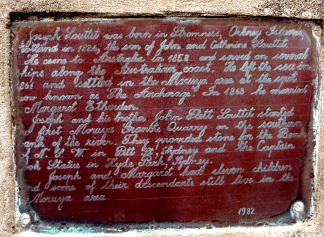 Joseph Louttit was born in Stromness, Orkney Islands
Scotland in 1826, the son of John and Catherine Louttit.
He came to Australia in 1852 and served on several
ships along the Australian coast. He left the sea in
and settled in the Moruya area at the spot
now known as "The Anchorage". In 1863 he married
Margaret
Joseph and his brother John Flett Louttit started
first Moruya Granite Quarry on the southern
bank of the river. They provided stone for the Bank
of N.S.W. in Pitt St. Sydney and the Captain
Cook Statue in Hyde Park, Sydney.
Joseph and Margaret had eleven children
and some of their descendants still live in the
Moruya area
1982